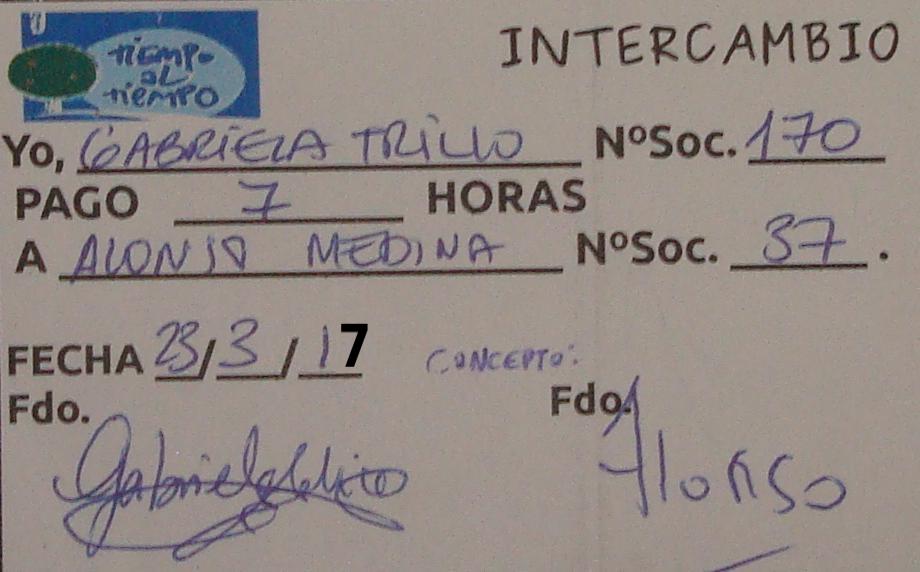 TIEMPO
AL
TIEMPO
INTERCAMBIO
Yo, GABRIELA TRILLO NºSoc. 170
PAGO 7 HORAS
A ALONSO MEDINA NºSoc. 37.
FECHA 23/3/17 CONCEPTO:
Fdo. Fdo.
Alonso